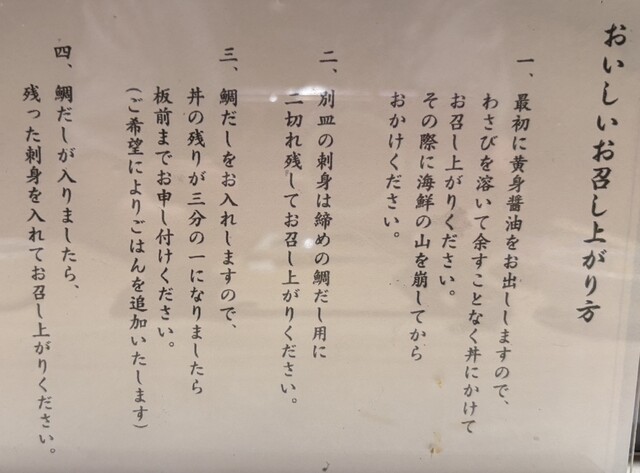 おいしいお召し上がり方
一、最初に黄身醤油をお出ししますので、
わさびを溶いて余すことなく丼にかけて
お召し上がりください。
その際に海鮮の山を崩してから
おかけください。
二、別皿の刺身は締めの鯛だし用に
二切れ残してお召し上がりください。
三、鯛だしをお入れしますので、
丼の残りが三分の一になりましたら
板前までお申し付けください。
(ご希望によりごはんを追加いたします)
四、鯛だしが入りましたら、
残った刺身を入れてお召し上がりください。